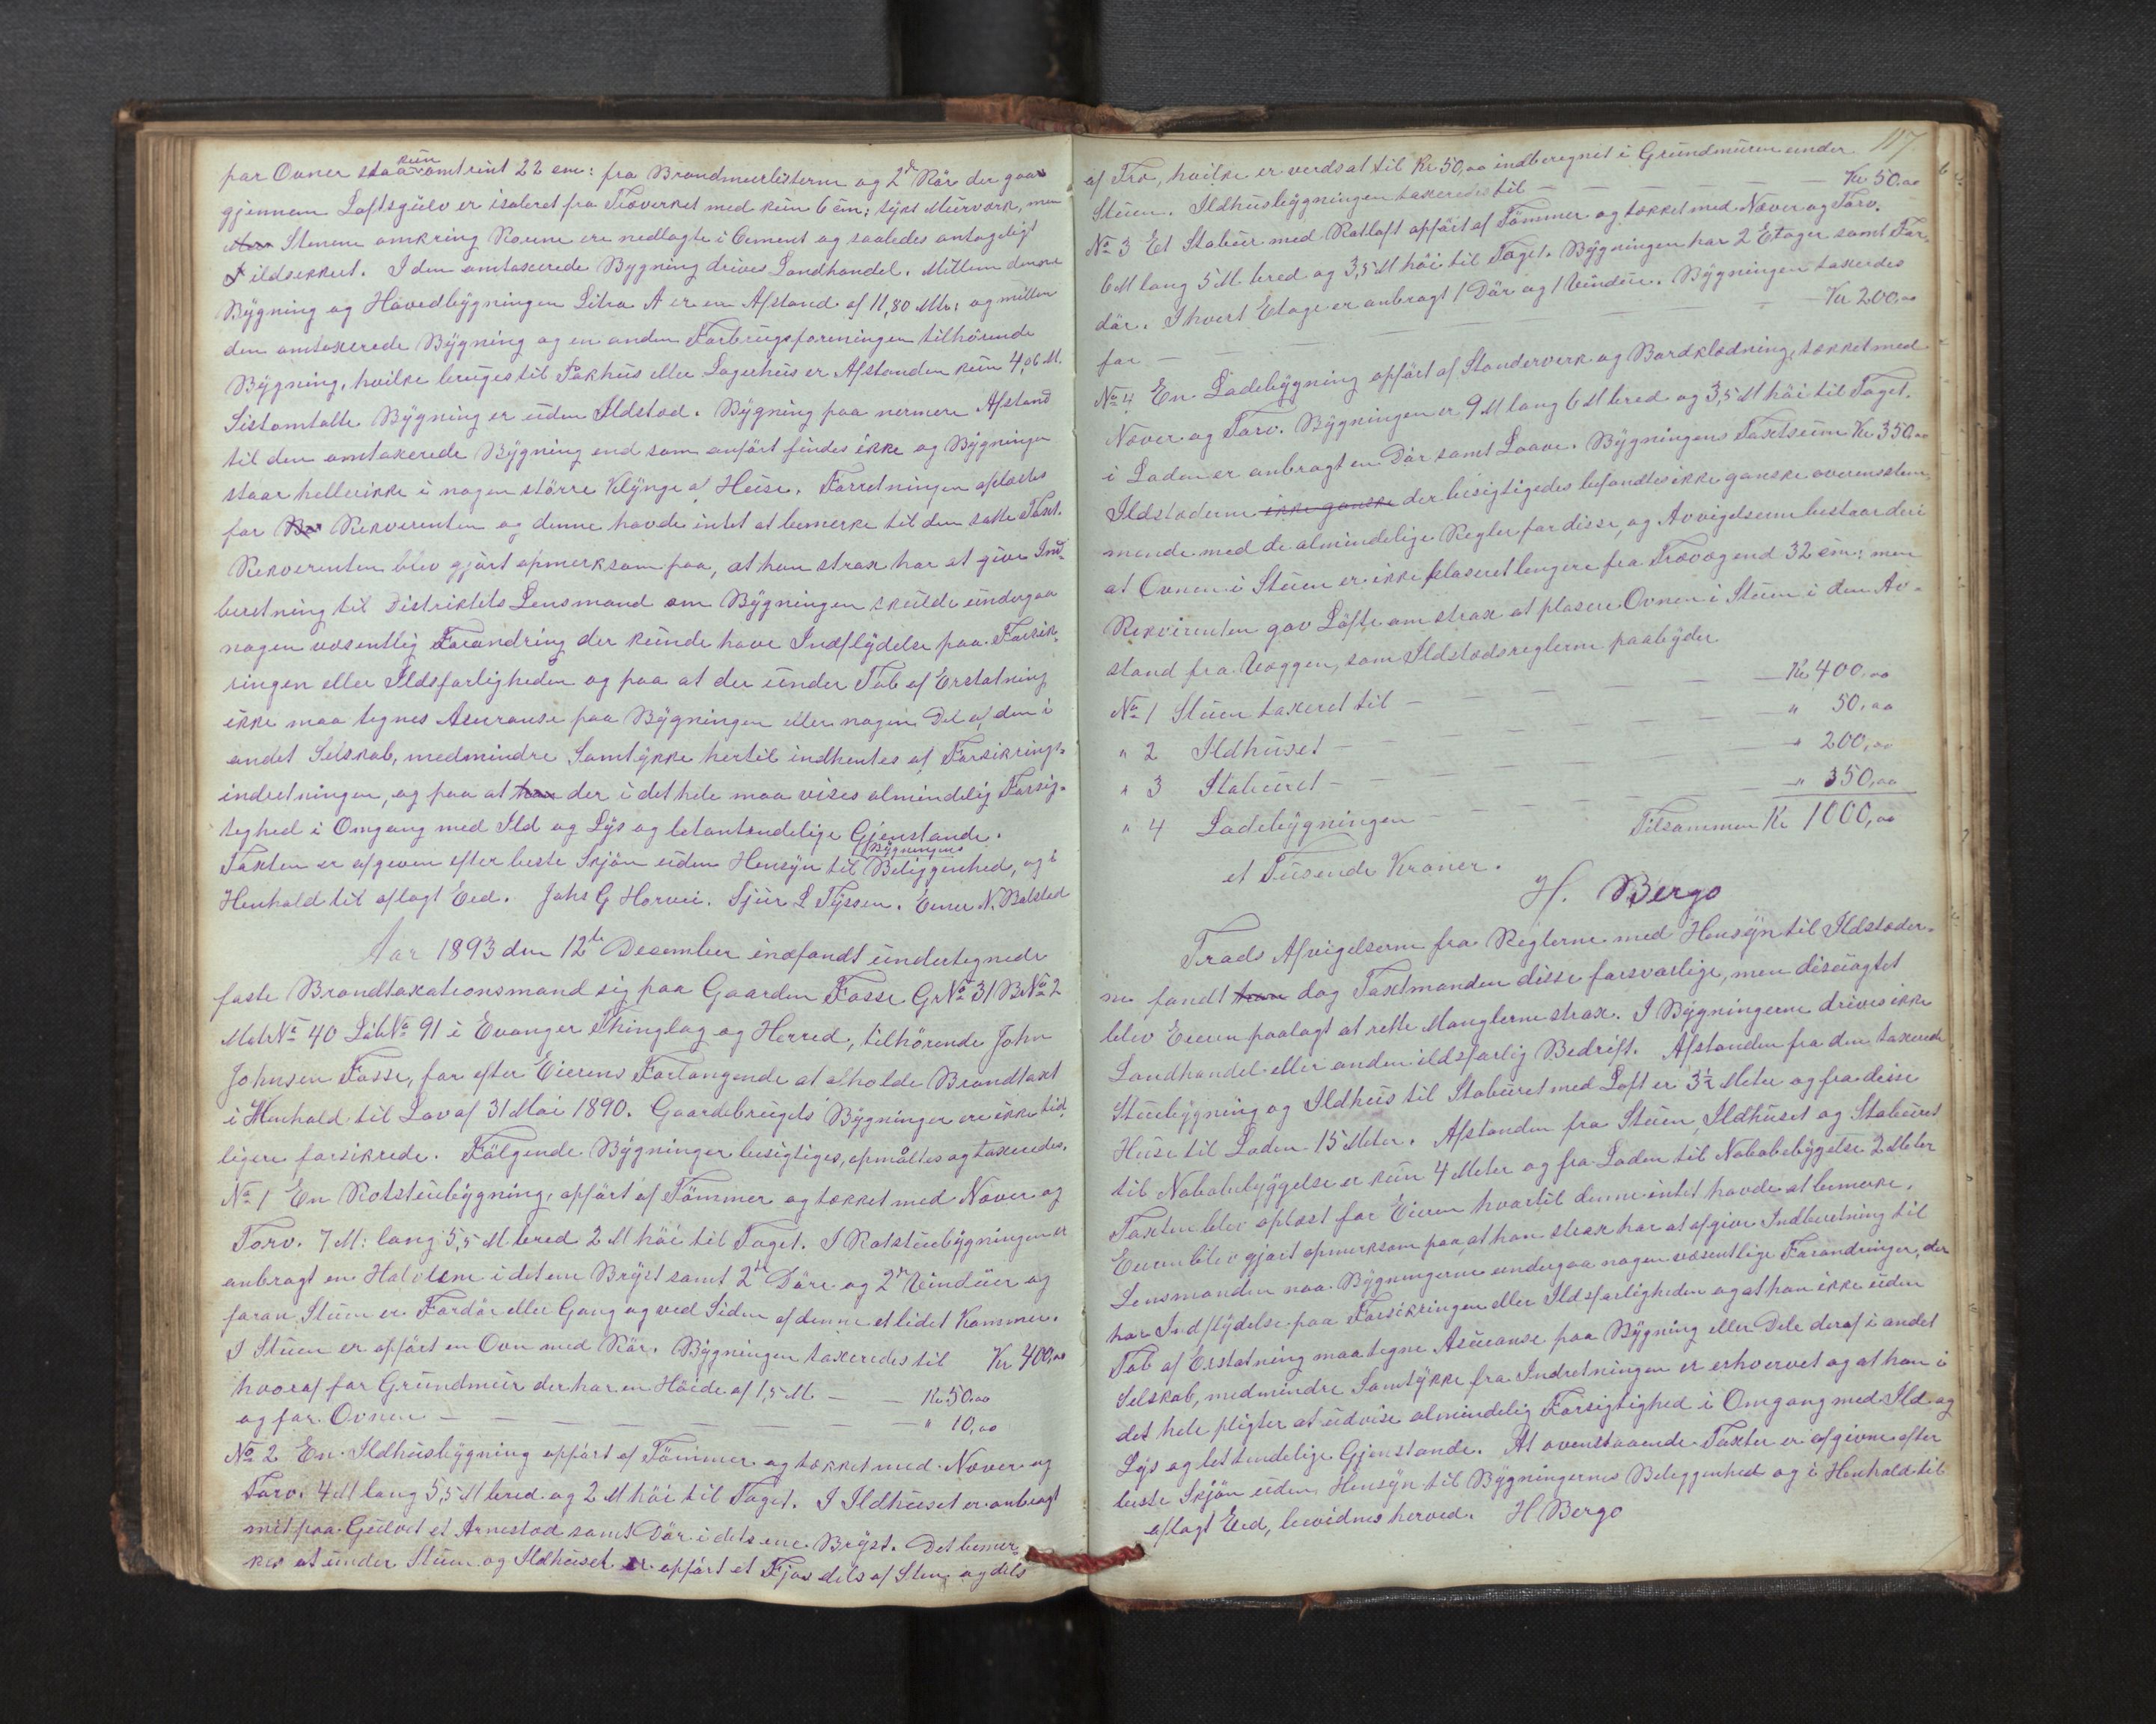 par Ovner staa kun omtrint 22 cm: fra Brandmurlisterne og 2de Rör der gaar
gjennem Loftsgulv er isoleret fra Træverket med kun 6 cm: tykt Murværk, men
Stenene omkring Rörene ere nedlagte i Cement og saaledes antageligt
ildsikkert. I den omtaxerede Bygning drives Landhandel. Mellem denne
Bygning og Hovedbygningen Litra A er en Afstand af 11,80 Mtr: og mellem
den omtaxerede Bygning og en anden Forbrugsforeningen tilhörende
Bygning, hvilke bruges til Pakhus eller Lagerhus er Afstanden kun 4,06 M.
Sistomtalte Bygning er uden Ildstad. Bygning paa nermere Afstand
til den omtaxerede Bygning end som anfört findes ikke og Bygningen
staar heller ikke i nogen större Klynge af Huse. Forretningen oplæstes
for Rekverenten og denne havde intet at bemerke til den satte Taxt.
Rekverenten blev gjort opmerksom paa, at han strax har at give Ind-
beretning til Distriktets Lensmand om Bygningen skulde undergaa
nogen væsentlig Forandring der kunde have Indflydelse paa Forsik-
ringen eller Ildsfarligheden og paa at der under Tab af Erstatning
ikke maa tegnes Asuranse paa Bygningen eller nogen Del af den i
andet Selskab, medmindre Samtykke hertil indhentes af Forsikrings-
indretningen, og paa at han der i det hele maa vises almindelig Forsig-
tighed i Omgang med Ild og Lys og letantendelige Gjenstande.
Taxten er afgiven efter beste Skjön uden Hensyn til Bygningens Beliggenhed, og i
Henhold til aflagt Eed. Johs G Horvei. Sjur L Tyssen. Einer N. Bolstad
Aar 1893 den 12te Desember indfandt undertegnede
faste Brandtaxationsmand sig paa Gaarden Fosse GrNo 31 BrNo 2
MatrNo 40 LöbNo 91 i Evanger Thinglag og Herred, tilhörende John
Johnsen Fosse, for efter Eierens Forlangende at afholde Brandtaxt
i Henhold til Lov af 31 Mai 1890. Gaardsbrugets Bygninger ere ikke tid
ligere forsikrede. Fölgende Bygninger besigtiges, opmåltes og taxeredes.
No 1 En Rotstuebygning, opfört af Tömmer og tækket med Næver og
Torv. 7 M: lang 5,5 M bred 2 M höi til Taget. I Rotstuebygningen er
anbragt en Halvlem i det ene Bryst samt 2de Döre og 2de Vinduer og
foran Stuen er Fordör eller Gang og ved Siden af denne et lidet Kammer.
I Stuen er opfört en Ovn med Rör. Bygningen taxeredes til Kr 400,00
hvoraf for Grundmur der har en Höide af 1,5 M. — — Kr. 50,00
og for Ovnen — — — — — — " 10,00
No 2 En Ildhusbygning opfört af Tömmer og tækket med Næver og
Torv. 4 M lang 5,5 M bred og 2 M höi til Taget. I Ildhuset er anbragt
mit paa Gulvet et Arnestad samt Dör i dets ene Bryst. Det bemer-
kes at under Stuen og Ildhuset er opfört et Fjös dels af Sten og dels
117
af Træ, hvilke er verdsat til Kr. 50,00 indberegnet i Grundmuren under
Stuen. Ildhusbygningen taxeredes til — — — — Kr 50,00
No 3 Et Stabur med Rotloft opfört af Tömmer og tækket med Næver og Torv.
6 M lang 5 M. bred og 3,5 M höi til Taget. Bygningen har 2 Etager samt For-
dör. I hvert Etage er anbragt 1 Dör og 1 Vindue. Bygningen taxerdes
for — — — — — — Kr 200,00
No 4 En Ladebygning opfört af Standerverk og Bordklædning, tækket med
Næver og Torv. Bygningen er 9 M lang 6 M bred og 3,5 M höi til Taget.
i Laden er anbragt en Dör samt Laave. Bygningens Taxtsum Kr 350,00
Ildstæderne ikke ganske der besigtigedes befandtes ikke ganske overensstem-
mende med de almindelige Regler for disse, og Avvigelserne bestaar deri
at Ovnen i Stuen er ikke plaseret lengere fra Trævæg end 32 cm: men
Rekvirenten gav Löfte om strax at plasere Ovnen i Stuen i den Av-
stand fra Væggen, som Ildstedsreglerne paabyder
No 1 Stuen taxeret til — — — — — Kr 400,00
" 2 Ildhuset — — — — — " 50,00
" 3 Staburet — — — — — " 200,00
" 4 Ladebygningen — — — — — " 350,00
Tilsammen Kr 1000,00
et Tusende Kroner.
H. Bergo
Trods Afvigelserne fra Reglerne med Hensyn til Ildstæder-
ne fandt han dog Taxtmanden disse forsvarlige, men disuagtet
blev Eieren paalagt at rette Manglerne strax. I Bygningerne drives ikke
Landhandel eller anden ildsfarlig Bedrift. Afstanden fra den taxerede
Stuebygning og Ildhus til Staburet med Loft er 3½ Meter og fra disse
Huse til Laden 15 Meter. Afstanden fra Stuen, Ildhuset og Staburet
til Nabobebyggelse er kun 4 Meter og fra Laden til Nabobebygelse 2 Meter
Taxten blev oplæst for Eieren hvortil denne intet havde at bemerke.
Eieren blev gjort opmerksom paa, at han strax har at afgive Indberetning til
Lensmanden naa Bygningerne undergaa nogen væsentlige Forandringer, der
har Indflydelse paa Forsikringen eller Ildsfarligheden og at han ikke uden
Tab af Erstatning maa tegne Asueanse paa Bygning eller Dele deraf i andet
Selskab, medmindre Samtykke fra Indretningen er erhvervet og at han i
det hele pligter at udvise almindelig Forsigtighed i Omgang med Ild og
Lys og lettendelige Gjenstande. At ovenstaaende Taxter er afgivne efter
beste Skjön uden Hensyn til Bygningernes Beleggenhed og i Henhold til
aflagt Eed, bevidnes herved. H Bergo